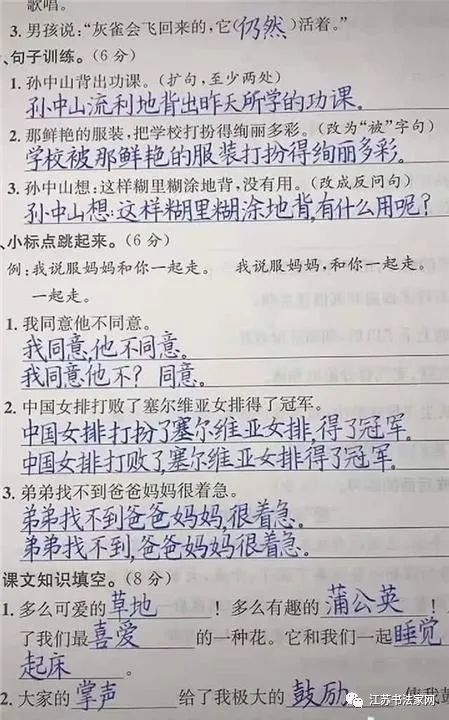 歌唱。
3. 男孩说:“灰雀会飞回来的,它(仍然)活着。”
、句子训练。(6分)
1. 孙中山背出功课。(扩句,至少两处)
孙中山流利地背出昨天所学的功课。
2. 那鲜艳的服装,把学校打扮得绚丽多彩。(改为“被”字句)
学校被那鲜艳的服装打扮得绚丽多彩。
3. 孙中山想:这样糊里糊涂地背,没有用。(改成反问句)
孙中山想:这样糊里糊涂地背,有什么用呢?
、小标点跳起来。(6分)
例:我说服妈妈和你一起走。 我说服妈妈,和你一起走。
一起走。
1. 我同意他不同意。
我同意,他不同意。
我同意他不? 同意。
2. 中国女排打败了塞尔维亚女排得了冠军。
中国女排打扮了塞尔维亚女排,得了冠军。
中国女排打败了,塞尔维亚女排得了冠军。
3. 弟弟找不到爸爸妈妈很着急。
弟弟找不到爸爸妈妈,很着急。
弟弟找不到,爸爸妈妈很着急。
课文知识填空。(8分)
1. 多么可爱的 草地 !多么有趣的 蒲公英 !
了我们最 喜爱 的一种花。它和我们一起 睡觉
起床 。
2. 大家的 掌声 给了我极大的 鼓励 使我鼓
江苏书法家网